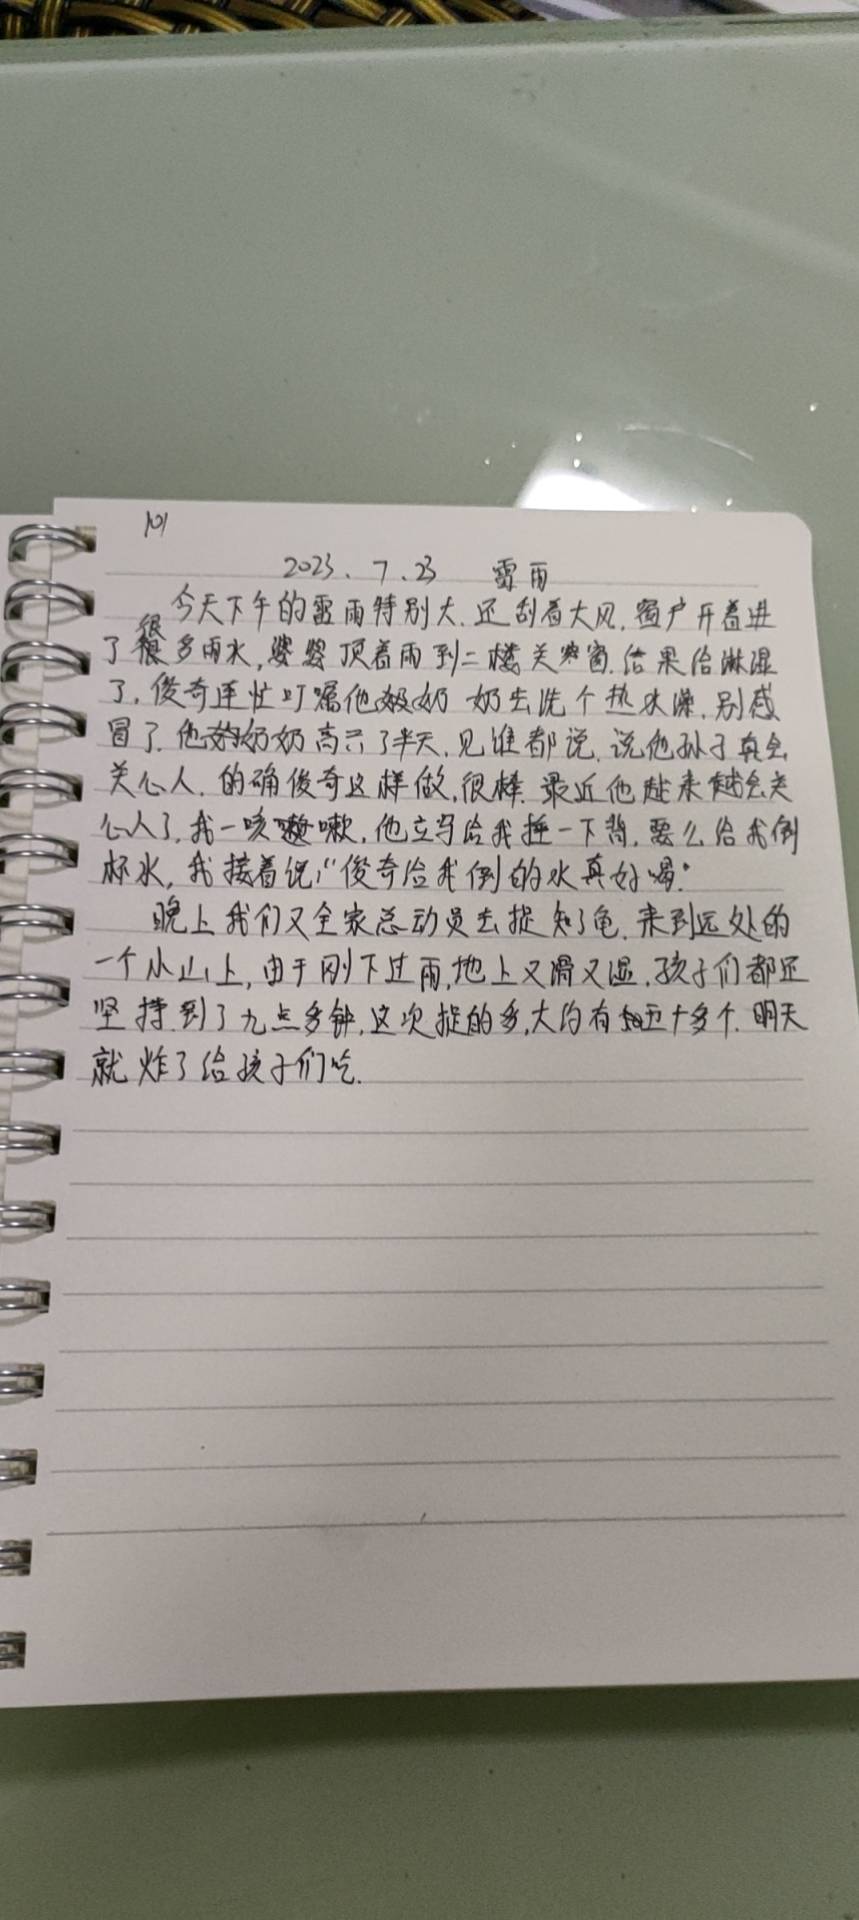 101
2023.7.23 雷雨
今天下午的雷雨特别大.还刮着大风.窗户开着进
了很多雨水,婆婆顶着雨到二楼关窗.结果给淋湿
了.俊奇连忙叮嘱他奶奶去洗个热水澡.别感
冒了.他奶奶高兴了半天.见谁都说.说他孙子真会
关心人.的确俊奇这样做,很棒.最近他越来越会关
心人了,我一咳嗽,他立马给我捶一下背,要么给我倒
杯水,我接着说:"俊奇给我倒的水真好喝."
晚上我们又全家总动员去捉知了龟.来到远处的
一个小山上,由于刚下过雨,地上又滑又湿.孩子们都还
坚持到了九点多钟.这次捉的多,大约有五十多个.明天
就炸了给孩子们吃.